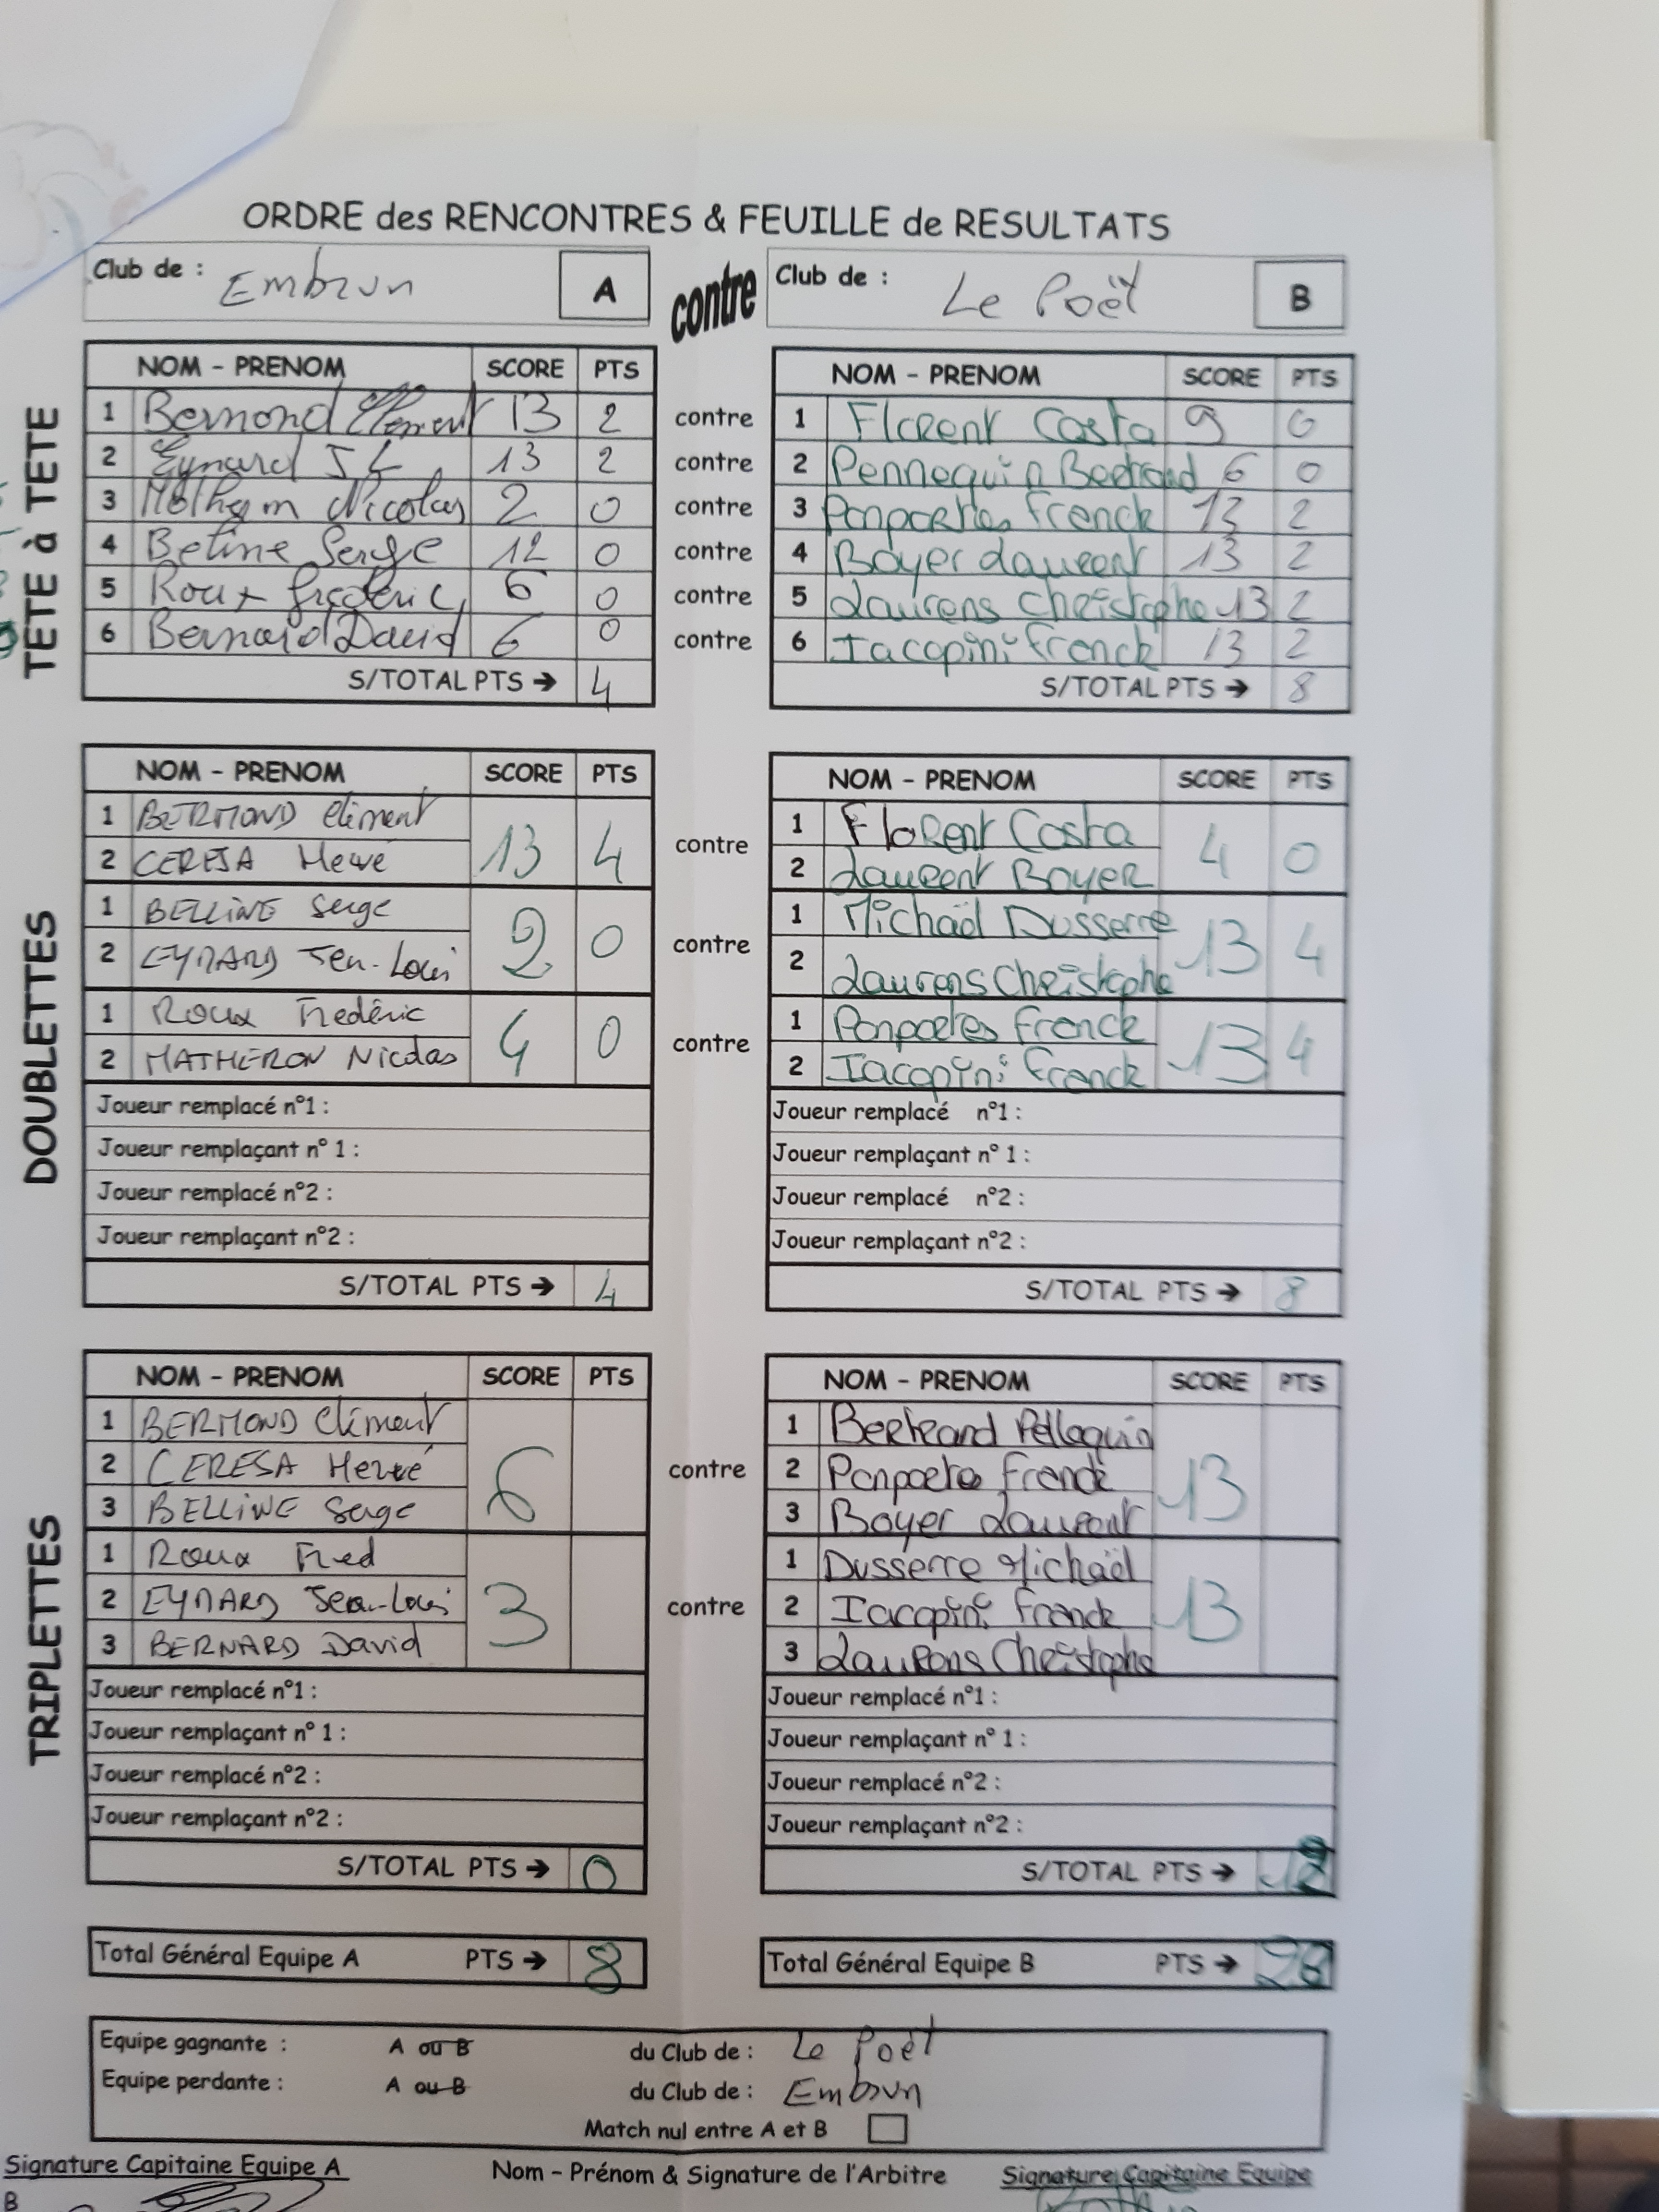 ORDRE des RENCONTRES & FEUILLE de RESULTATS
Club de : Embrun A contre Club de : Le Poët B
TETE à TETE
NOM - PRENOM SCORE PTS NOM - PRENOM SCORE PTS
1 Bermond Clément 13 2 contre 1 Florent Costa 9 0
2 Eynard J L 13 2 contre 2 Pennequin Bertrand 6 0
3 Nicolas 2 0 contre 3 Ponportes Franck 13 2
4 Beline Serge 12 0 contre 4 Boyer Laurent 13 2
5 Roux frederic 6 0 contre 5 Laurens Christophe 13 2
6 Bernard David 6 0 contre 6 Iacopini Franck 13 2
S/TOTAL PTS ➔ 4 S/TOTAL PTS ➔ 8
DOUBLETTES
NOM - PRENOM SCORE PTS NOM - PRENOM SCORE PTS
1 BERMOND Clément 13 4 contre 1 Florent Costa 4 0
2 CERESA Hervé 2 Laurent Boyer
1 BELLINE Serge 2 0 contre 1 Michaël Dusserre 13 4
2 EYNARD Jean-Louis 2 Laurens Christophe
1 Roux Frederic 4 0 contre 1 Ponportes Franck 13 4
2 MATHERON Nicolas 2 Iacopini Franck
Joueur remplacé n°1 : Joueur remplacé n°1 :
Joueur remplaçant n° 1 : Joueur remplaçant n° 1 :
Joueur remplacé n°2 : Joueur remplacé n°2 :
Joueur remplaçant n°2 : Joueur remplaçant n°2 :
S/TOTAL PTS ➔ 4 S/TOTAL PTS ➔ 8
TRIPLETTES
NOM - PRENOM SCORE PTS NOM - PRENOM SCORE PTS
1 BERMOND Clément 6 1 Bertrand 13
2 CERESA Hervé contre 2 Ponportes Franck
3 BELLINE Serge 3 Boyer Laurent
1 Roux Fred 3 1 Dusserre Michaël 13
2 EYNARD Jean-Louis contre 2 Iacopini Franck
3 BERNARD David 3 Laurens Christophe
Joueur remplacé n°1 : Joueur remplacé n°1 :
Joueur remplaçant n° 1 : Joueur remplaçant n° 1 :
Joueur remplacé n°2 : Joueur remplacé n°2 :
Joueur remplaçant n°2 : Joueur remplaçant n°2 :
S/TOTAL PTS ➔ 0 S/TOTAL PTS ➔
Total Général Equipe A PTS ➔ 8 Total Général Equipe B PTS ➔
Equipe gagnante : A ou B du Club de : Le Poët
Equipe perdante : A ou B du Club de : Embrun
Match nul entre A et B
Signature Capitaine Equipe A Nom - Prénom & Signature de l'Arbitre Signature Capitaine Equipe
B